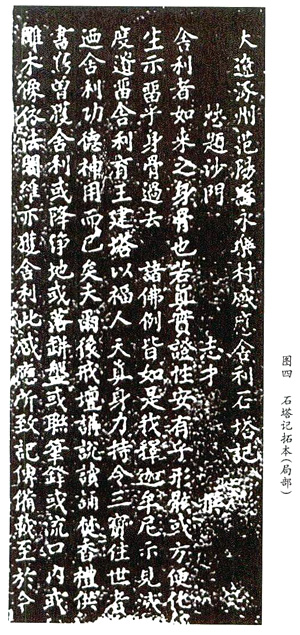 大遼涿州范陽縣永樂村感應舍利石塔記
崇題沙門 志才 撰
舍利者如來之身骨也若真實證性安有乎形骸或方便化
生示留乎身骨過去 諸佛例皆如是我釋迦牟尼示見滅
度遺留舍利育王建塔以福人天真身力持令三寶住世者
迺舍利功德神用而已矣夫爾後戒壇講說讀誦徒香禮供
書 曾獲舍利或降净地或落缾盤或聯筆鋒或流口内或
雕木像 法闍維亦獲舍利此感應所致記傳備載至於今
图四 石塔记拓本(局部)